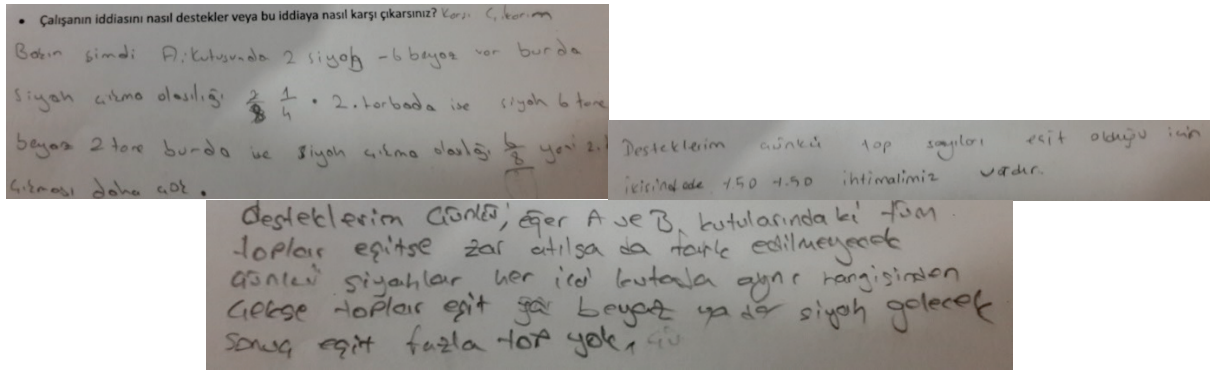 • Çalışanın iddiasını nasıl destekler veya bu iddiaya nasıl karşı çıkarsınız? Karşı Çıkarım
Bakın şimdi A. kutusunda 2 siyah - 6 beyaz var burda
siyah çıkma olasılığı 2/8 1/4 . 2. torbada ise siyah 6 tane
beyaz 2 tane burda ise siyah çıkma olasılığı 6/8 yani 2.
çıkması daha çok.
Desteklerim çünkü top sayıları eşit olduğu için
ikisindede %50 %50 ihtimalimiz vadır.
Desteklerim Çünkü, eğer A ve B. kutularındaki tüm
toplar eşitse zar atılsa da fark edilmeyecek
Günkü siyahlar her iki kutuda aynı hangisinden
çekse toplar eşit beyaz ya da siyah gelecek
sonuç eşit fazla top yok,